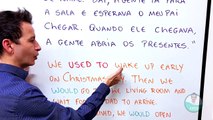 DE NATAL. DAÍ, A GENTE IA PARA
A SALA E ESPERAVA O MEU PAI
CHEGAR. QUANDO ELE CHEGAVA,
A GENTE ABRIA OS PRESENTES."
WE USED TO WAKE UP EARLY
ON CHRISTMAS THEN WE
WOULD LIVING ROOM AND
WAIT DAD TO ARRIVE
WE WOULD OPEN